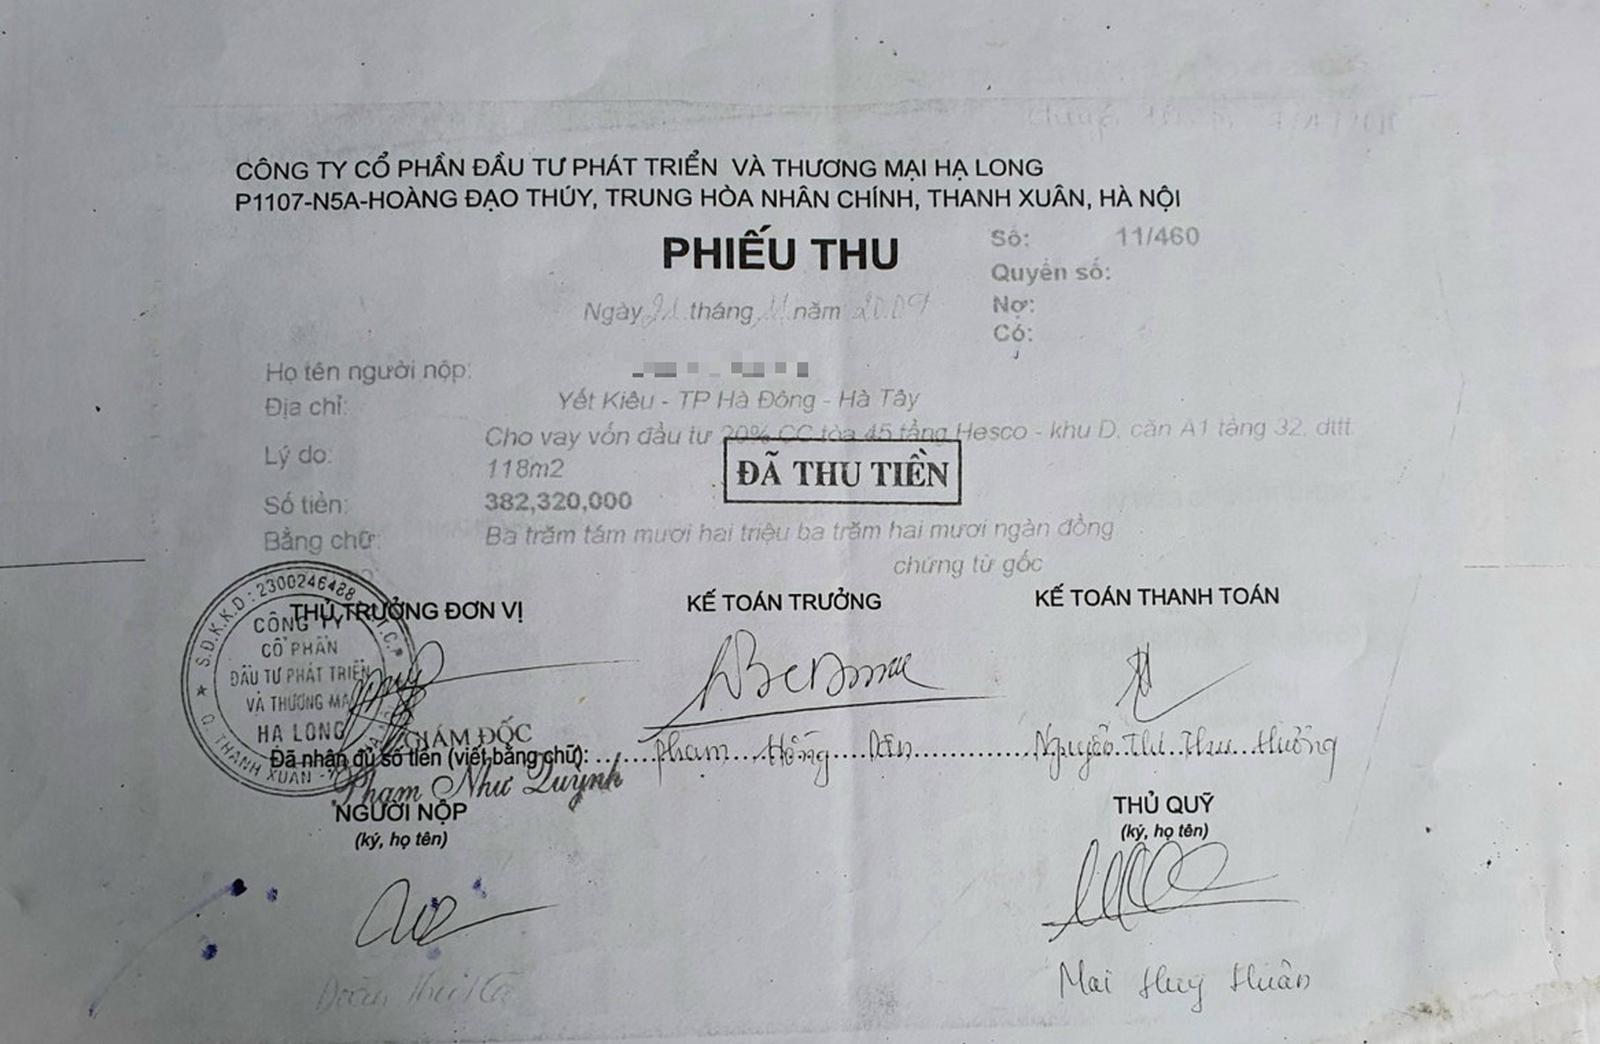 CÔNG TY CỔ PHẦN ĐẦU TƯ PHÁT TRIỂN VÀ THƯƠNG MẠI HẠ LONG
P1107-N5A-HOÀNG ĐẠO THÚY, TRUNG HÒA NHÂN CHÍNH, THANH XUÂN, HÀ NỘI
PHIẾU THU
Số: 11/460
Quyển số:
Nợ:
Có:
Ngày 21 tháng 11 năm 2009
Họ tên người nộp:
Địa chỉ: Yết Kiêu - TP Hà Đông - Hà Tây
Lý do: Cho vay vốn đầu tư 20% CC tòa 45 tầng Hesco - khu D, căn A1 tầng 32, dttt
118m2
ĐÃ THU TIỀN
Số tiền: 382,320,000
Bằng chữ: Ba trăm tám mươi hai triệu ba trăm hai mươi ngàn đồng
chứng từ gốc
THỦ TRƯỞNG ĐƠN VỊ KẾ TOÁN TRƯỞNG KẾ TOÁN THANH TOÁN
S.Đ.K.K.D: 2300246488
CÔNG TY
CỔ PHẦN
ĐẦU TƯ PHÁT TRIỂN
VÀ THƯƠNG MẠI
HẠ LONG
THANH XUÂN
GIÁM ĐỐC
Đã nhận đủ số tiền (viết bằng chữ): Phạm Hồng Dân Nguyễn Thị Thu Hường
Phạm Như Quỳnh
NGƯỜI NỘP THỦ QUỸ
(ký, họ tên) (ký, họ tên)
Mai Huy Huân